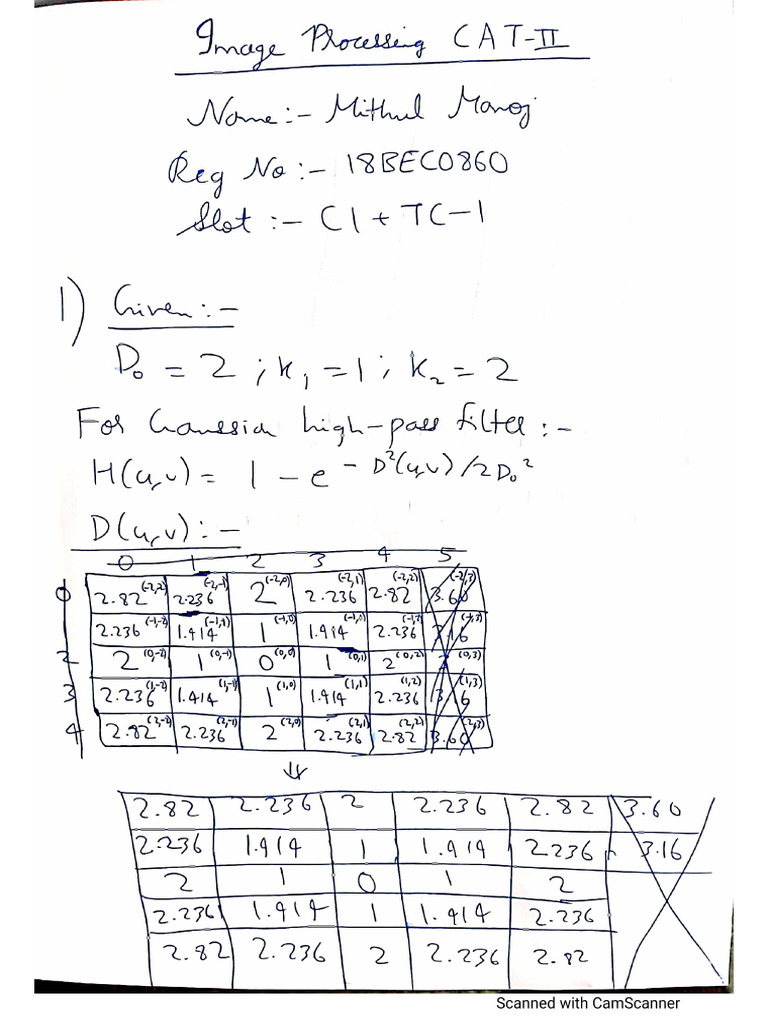 Image Processing CAT-II
Name:- Mithul Manoj
Reg No:- 18BEC0860
Slot:- C1 + TC-1
1) Given:-
D₀ = 2 ; k₁ = 1 ; k₂ = 2
For Gaussian high-pass filter :-
H(u,v) = 1 - e^- D²(u,v)/2D₀²
D(u,v):-
0 1 2 3 4 5
0 2.82 (-2,2) 2.236 (-2,-1) 2 (-2,0) 2.236 (-2,1) 2.82 (-2,2) 3.60 (-2,3)
2.236 (-1,-2) 1.414 (-1,1) 1 (-1,0) 1.414 (-1,0) 2.236 (-1,2) 3.16 (-1,3)
2 2 (0,-2) 1 (0,-1) 0 (0,0) 1 (0,1) 2 (0,2) (0,3)
3 2.236 (1,-2) 1.414 (1,-1) 1 (1,0) 1.414 (1,1) 2.236 (1,2) 3.16 (1,3)
4 2.82 (2,-2) 2.236 (2,-1) 2 (2,0) 2.236 (2,1) 2.82 (2,2) 3.60 (2,3)
⇓
2.82 2.236 2 2.236 2.82 3.60
2.236 1.414 1 1.414 2.236 3.16
2 1 0 1 2
2.236 1.414 1 1.414 2.236
2.82 2.236 2 2.236 2.82
Scanned with CamScanner